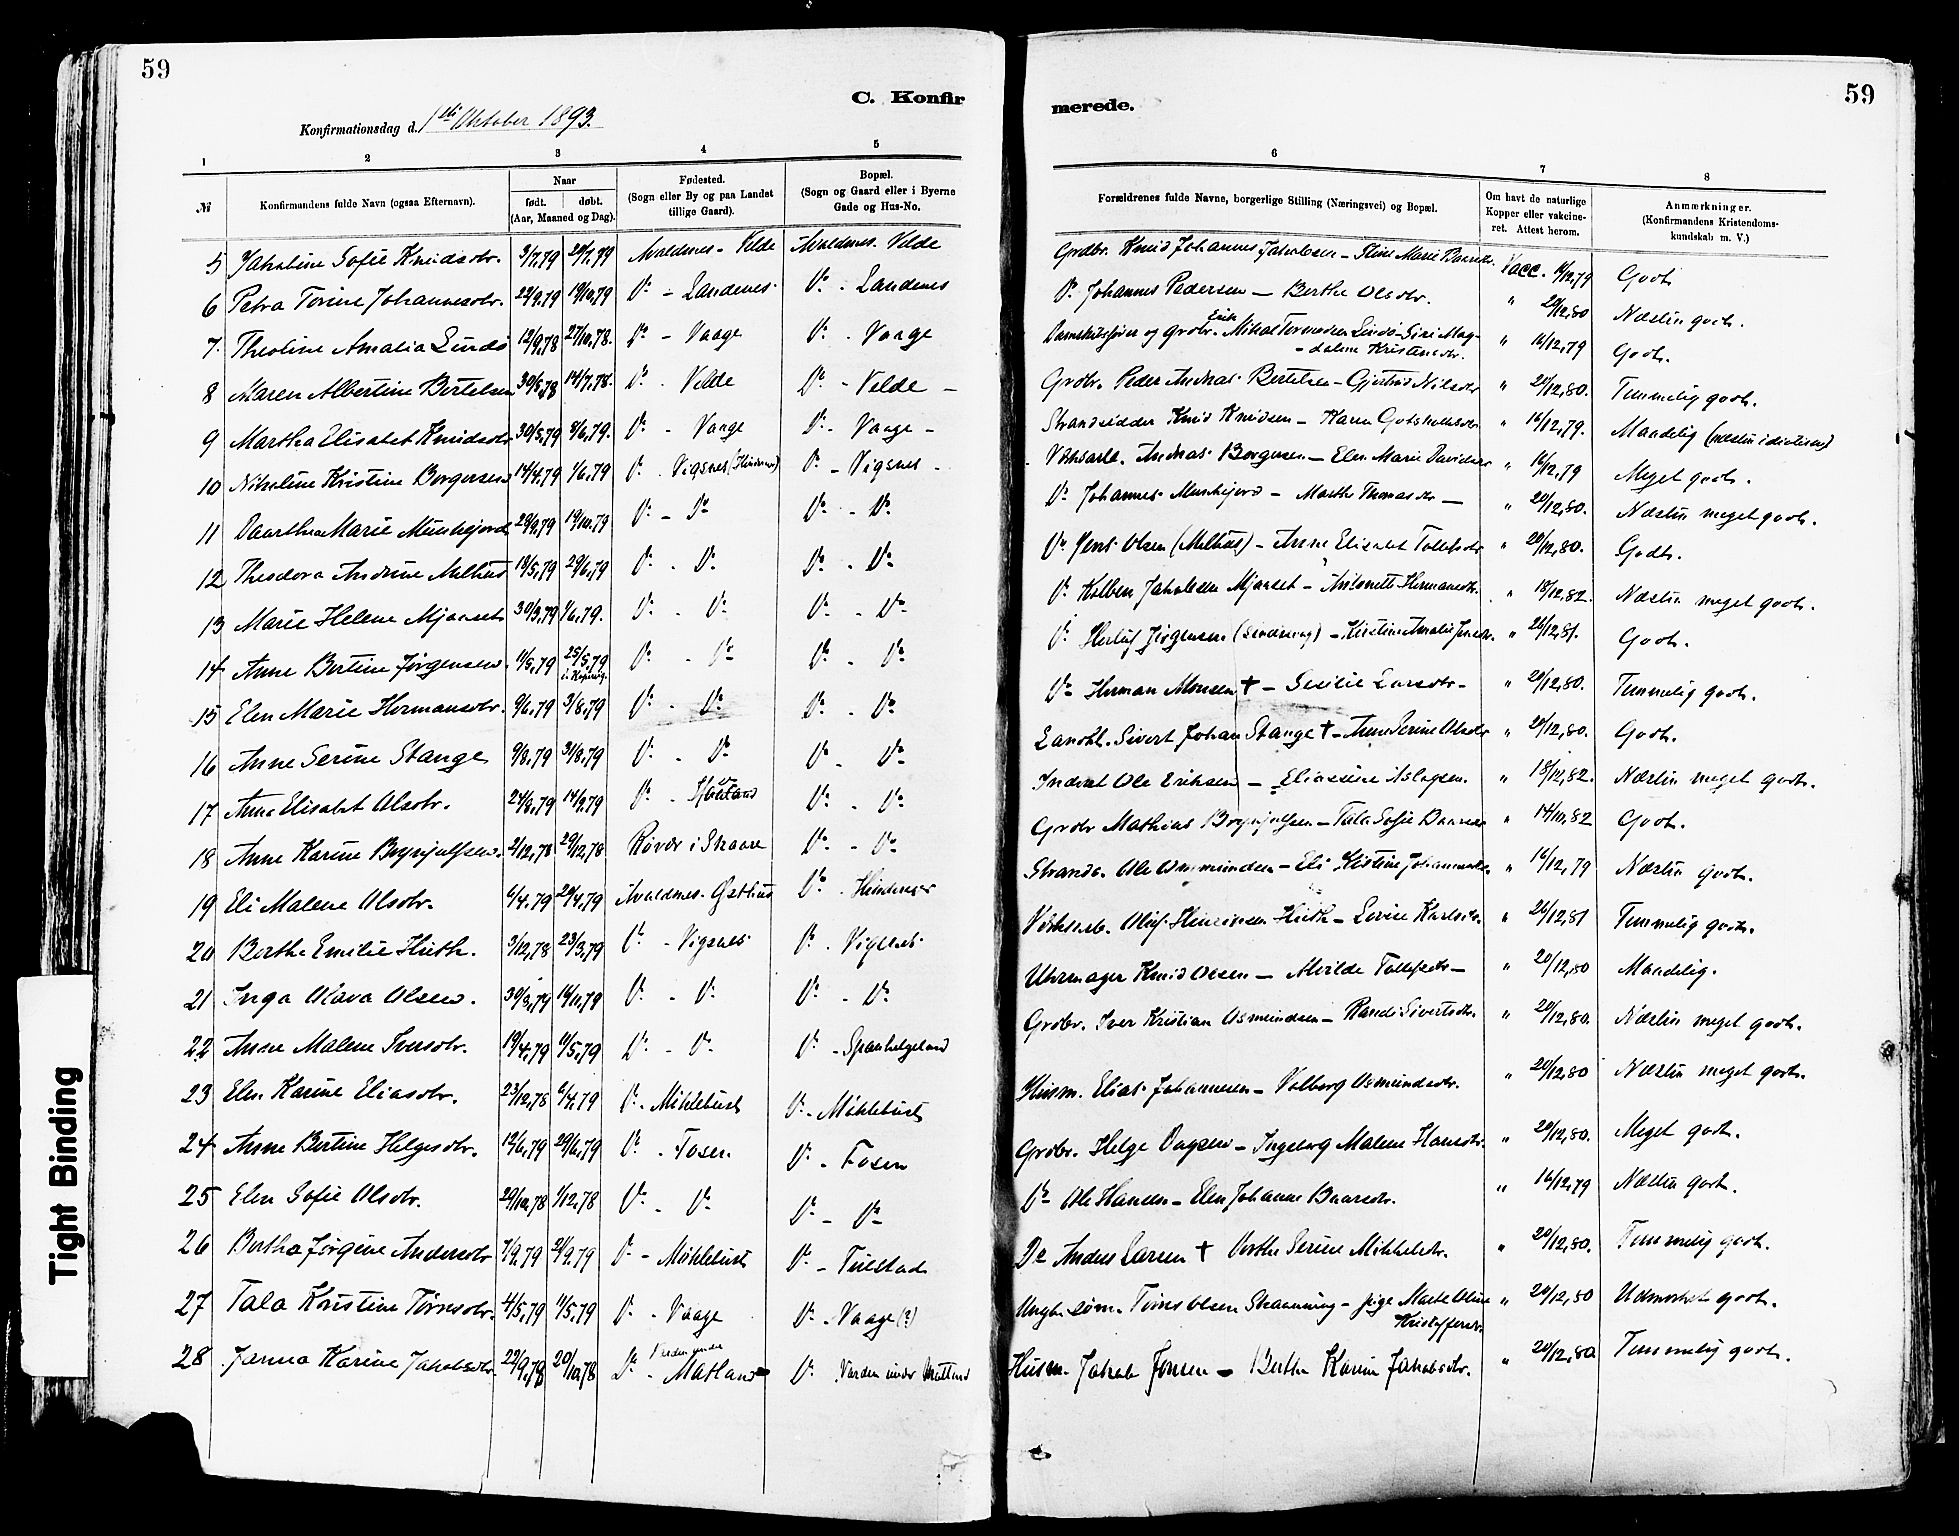 59
C. Konfir
merede.
59
Konfirmationsdag d. 1ste Oktober 1893.
1 2 3 4 5 6 7 8
№
Konfirmandens fulde Navn (ogsaa Efternavn).
Naar
født. døbt.
(Aar, Maaned og Dag).
Fødested.
(Sogn eller By og paa Landet
tillige Gaard).
Bopæl.
(Sogn og Gaard eller i Byerne
Gade og Hus-No.
Forældrenes fulde Navne, borgerlige Stilling (Næringsvei) og Bopæl.
Om havt de naturlige
Kopper eller vakcine-
ret. Attest herom.
Anmærkninger.
(Konfirmandens Kristendoms-
kundskab m. V.)
5 Jakobine Sofie Knudsdtr. 3/7,79 20/7,79 Avaldsnes - Velde Avaldsnes. Velde Grdbr. Knud Johannes Jakobsen - Stine Marie Baardsdtr. Vacc. 16/12,79 Godt
6 Petra Torine Johannesdtr. 22/9,79 19/10,79 Do - Landenes Do - Landenes Do Johannes Pedersen - Berthe Olsdtr. " 20/12,80 Næsten godt.
7 Theoline Amalia Lindø 12/9,78 27/10,78. Do - Vaage Do - Vaage Damskibsfører og Grdbr. Erik Mikal Tormodsen Lindø - Siri Mag-
-dalene Kristensdtr. " 16/12,79 Godt.
8 Maren Albertine Bertelsen 30/5,78 14/7,78. Do - Velde Do - Velde - Grdbr. Peder Andreas Bertelsen - Gjertrud Nilsdtr " 20/12,80. Temmelig godt.
9 Martha Elisabet Knudsdtr. 30/5,79 8/6,79. Do - Vaage Do - Vaage - Strandsidder Knud Knudsen - Karen Gotskalksdtr " 16/12,79. Maadelig (næsten idiotisk)
10 Nikoline Kristine Borgersen 14/4,79 1/6,79 Do - Vigsnes Do - Vigsnes - Verksarb. Andreas Borgersen - Elen Marie Davidsdtr " 16/12,79 Meget godt.
11 Daarthea Marie Munkejord 29/9,79 19/10,79 Do - Do Do - Do Do Johannes Munkejord - Marthe Thomasdtr - " 20/12,80. Næsten meget godt.
12 Theodora Andrine Melhus 18/5,79 29/6,79 Do - Do Do - Do Do Jens Olsen (Melhus) - Anne Elisabet Tollefsdtr " 20/12,80. Godt.
13 Marie Helene Mjaaset 30/3,79 1/6,79. Do - Do Do - Do Do Kolben Jakobsen Mjaaset - Antonette Hermansdtr. " 18/12,82. Næsten meget godt.
14 Anne Bertine Jørgensen. 11/5,79 25/5,79 Do - Do Do - Do Do Jørgensen - Kristine Amalie " 26/12,81. Godt.
15 Elen Marie Hermansdtr. 9/6,79 3/8,79 Do - Do Do - Do Do Herman Monsen † - Sesilie Larsdtr - " 20/12,80. Temmelig godt.
16 Anne Serine Stange 9/8,79 31/8,79 Do - Do Do - Do Landh. Sivert Johan Stange † - Anne Serine Olsdtr " 20/12,80. Godt.
17 Anna Elisabet Olsdtr. 24/8,79 14/9,79 Do - Do - Do Inderst Ole Eriksen - Eliassine Aslagsen. " 18/12,82. Næsten meget godt.
18 Anne Karine Brynjulfsen. 2/12,78 29/12,78 Røvær i Skaare Do - Do Grdbr Mathias Brynjulfsen - Tala Sofie Baardsdtr " 14/10,82 Godt.
19 Eli Malene Olsdtr. 6/4,79 20/4,79 Avaldsnes - Østhus Do - Strands. Ole Osmundsen - Eli Kistine Johannesdtr. " 16/12,79 Næsten godt.
20 Berthe Emilie Huth. 3/12,78 23/3,79 Do - Vigsnes Do - Vigsnes Verksarb. Oluf Henriksen Huth - Lovise Karlsdtr. " 26/12,81 Temmelig godt.
21 Inga Olava Olsen. 30/3,79 16/11,79 Do - Do Do - Do Uhrmager Knud Olsen - Alvilde Tollefsdtr - " 20/12,80 Maadelig.
22 Anne Malene Iversdtr. 19/4,79 11/5,79 Do - Do Do - Spanhelgeland Grdbr. Iver Kristian Osmundsen - Randi Sivertsdtr. " 20/12,80. Næsten meget godt.
23 Elen Karine Eliasdtr. 23/12,78 6/4,79 Do - Møhlebust Do - Møhlebust Husm. Elias Johannesen - Valborg Osmundsdtr. " 20/12,80 Næsten meget godt.
24 Anne Bertine Helgesdtr. 12/6,79 29/6,79 Do - Fosen Do - Fosen Grdbr. Helge Dagsen - Ingeborg Malene Hansdtr. " 20/12,80. Meget godt.
25 Elen Sofie Olsdtr. 29/10,78 1/12,78 Do - Do Do - Do Do Ole Hansen - Elen Johanne Baarsdtr. " 16/12,79 Næsten godt.
26 Bertha Jørgine Andersdtr 7/9,79 21/9,79 Do - Møhlebust Do - Do Anders Larsen † Serine Mikkelsdtr. " 20/12,80. Temmelig godt.
27 Tala Kristine Tørresdtr. 4/5,79 11/5,79 Do - Vaage Do - Vaage (?) Ungk. søm. Tørres Olsen - pige Marte Oline
Kristoffersdtr. " 20/12,80 Udmerket godt.
28 Janna Karine Jakobsdtr. 22/9,78 20/10,78 Do - Varden under Matland Do - Varden under Matland Husm. Jakob Jonsen - Berthe Karine Jakobsdtr. " 20/12,80 Temmelig godt.
Tight Binding